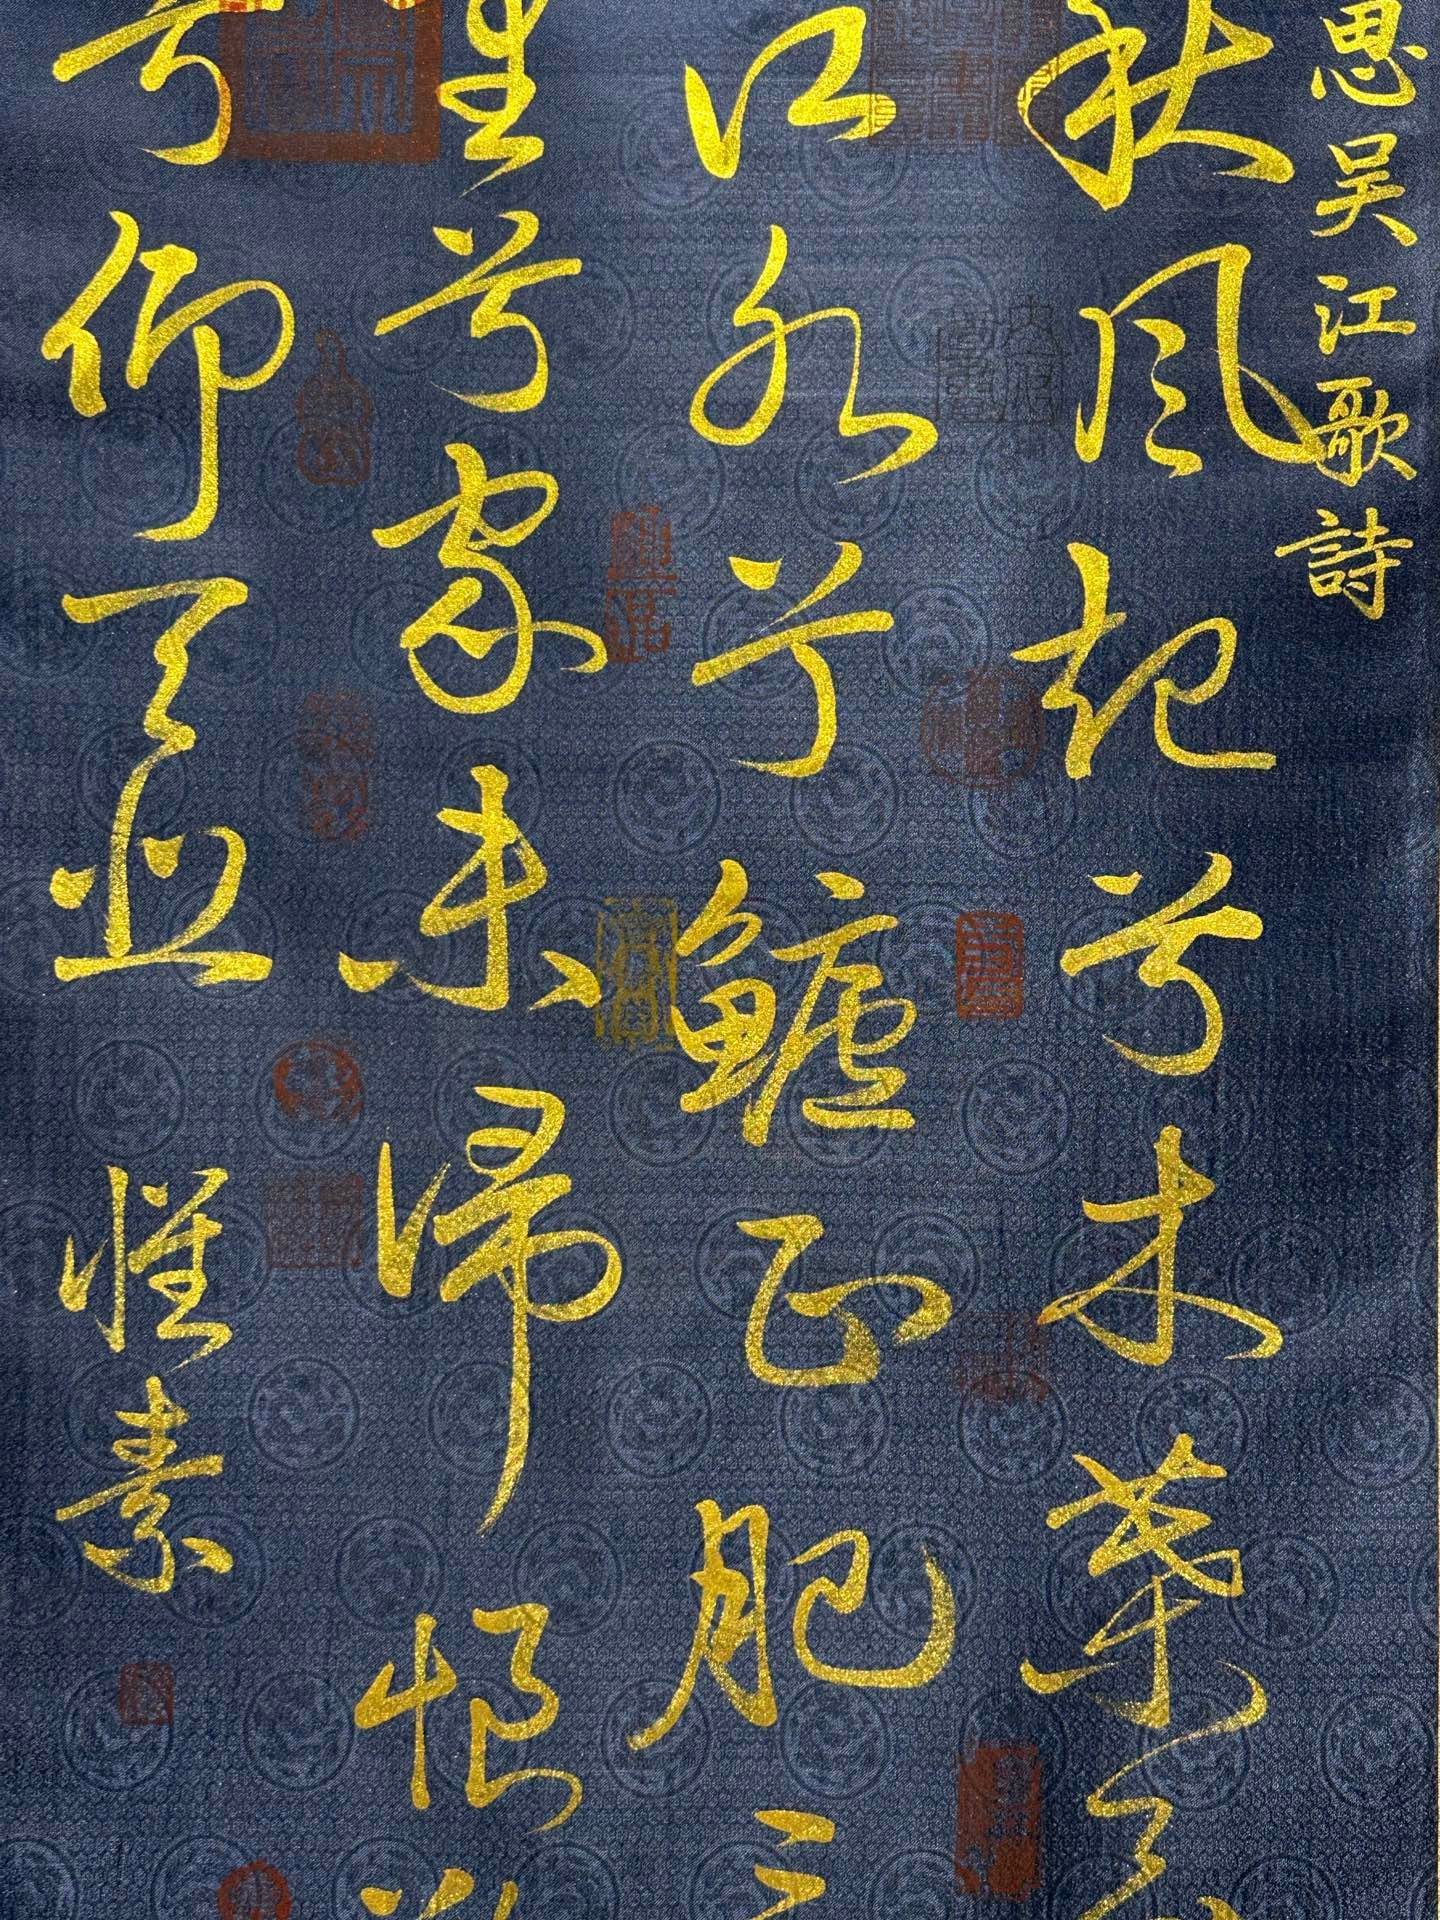 思吴江歌詩
秋风起兮木葉飛
江水兮鱸正肥三
里兮家未歸恨難
兮仰天悲
惟素